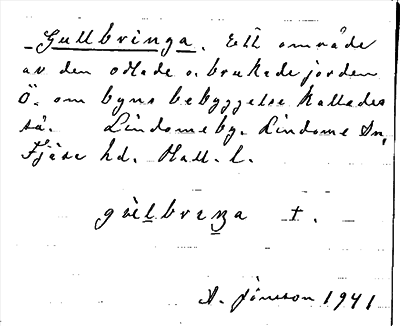 _Gullbringa. Ett område
av den odlade o. brukade jorden
Ö. om byns bebyggelse kallades
så. Lindome by. Lindome sn,
Fjäre hd. Hall. l.
A. Jönsson 1941